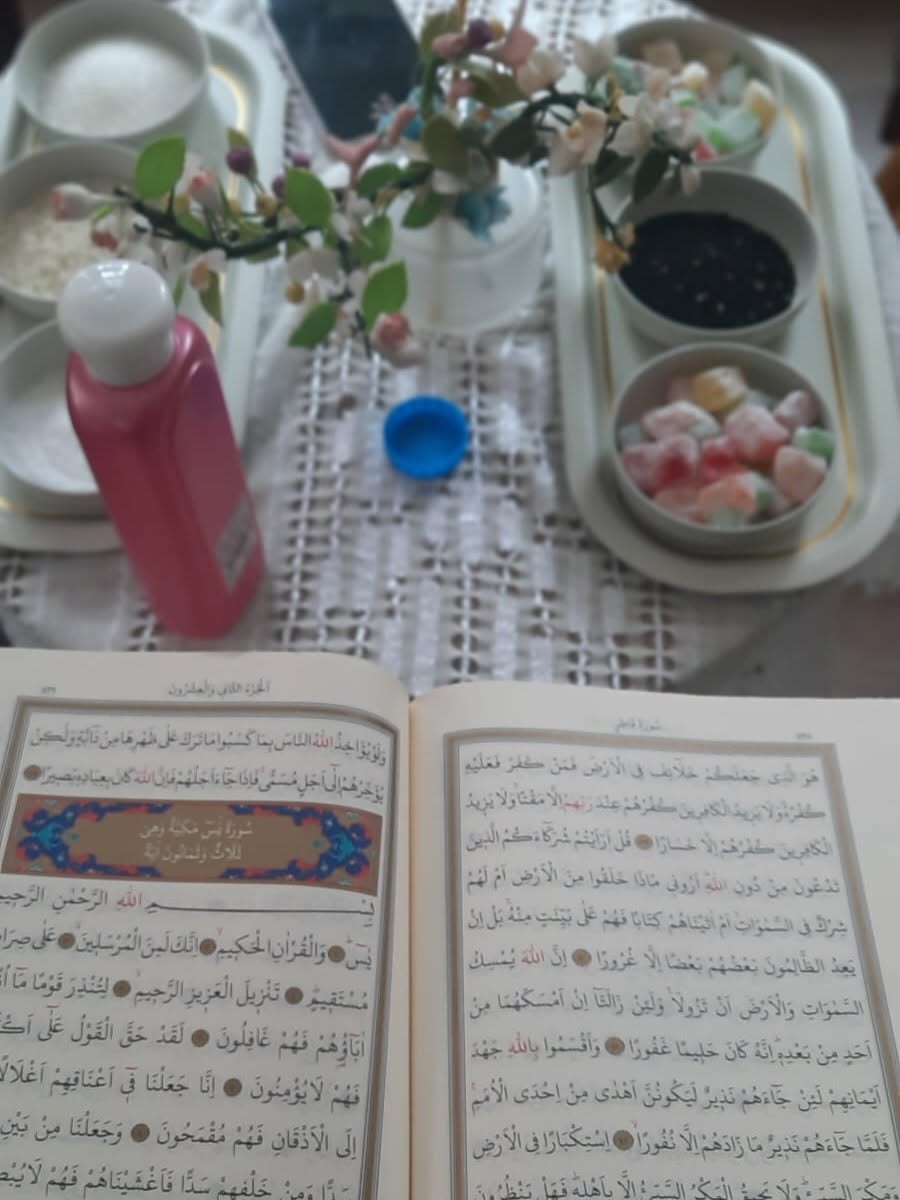 سُورَةُ فَاطِرٍ
هُوَ الَّذِى جَعَلَكُمْ خَلَٓائِفَ فِى الْاَرْضِ فَمَنْ كَفَرَ فَعَلَيْهِ
كُفْرُهُ وَلَا يَزِيدُ الْكَافِرِينَ كُفْرُهُمْ عِنْدَ رَبِّهِمْ اِلَّا مَقْتًا وَلَا يَزِيدُ
الْكَافِرِينَ كُفْرُهُمْ اِلَّا خَسَارًا قُلْ اَرَاَيْتُمْ شُرَكَٓاءَكُمُ الَّذِينَ
تَدْعُونَ مِنْ دُونِ اللّٰهِ اَرُونِى مَاذَا خَلَقُوا مِنَ الْاَرْضِ اَمْ لَهُمْ
شِرْكٌ فِى السَّمٰوَاتِ اَمْ اٰتَيْنَاهُمْ كِتَابًا فَهُمْ عَلٰى بَيِّنَتٍ مِنْهُ بَلْ اِنْ
يَعِدُ الظَّالِمُونَ بَعْضُهُمْ بَعْضًا اِلَّا غُرُورًا اِنَّ اللّٰهَ يُمْسِكُ
السَّمٰوَاتِ وَالْاَرْضَ اَنْ تَزُولَا وَلَئِنْ زَالَتَٓا اِنْ اَمْسَكَهُمَا مِنْ
اَحَدٍ مِنْ بَعْدِهِ اِنَّهُ كَانَ حَلِيمًا غَفُورًا وَاَقْسَمُوا بِاللّٰهِ جَهْدَ
اَيْمَانِهِمْ لَئِنْ جَٓاءَهُمْ نَذِيرٌ لَيَكُونُنَّ اَهْدٰى مِنْ اِحْدَى الْاُمَمِ
فَلَمَّا جَٓاءَهُمْ نَذِيرٌ مَا زَادَهُمْ اِلَّا نُفُورًا اِسْتِكْبَارًا فِى الْاَرْضِ
وَمَكْرَ السَّيِّئِ وَلَا يَحِيقُ الْمَكْرُ السَّيِّئُ اِلَّا بِاَهْلِهِ فَهَلْ يَنْظُرُونَ
اَلْجُزْءُ الثَّانِى وَالْعِشْرُونَ
وَلَوْ يُؤَاخِذُ اللّٰهُ النَّاسَ بِمَا كَسَبُوا مَا تَرَكَ عَلٰى ظَهْرِهَا مِنْ دَٓابَّةٍ وَلٰكِنْ
يُؤَخِّرُهُمْ اِلٰٓى اَجَلٍ مُسَمًّى فَاِذَا جَٓاءَ اَجَلُهُمْ فَاِنَّ اللّٰهَ كَانَ بِعِبَادِهِ بَصِيرًا
سُورَةُ يٰسٓ مَكِّيَّةٌ وَهِىَ
ثَلَاثٌ وَثَمَانُونَ اٰيَةً
بِسْمِ اللّٰهِ الرَّحْمٰنِ الرَّحِيمِ
يٰسٓ وَالْقُرْاٰنِ الْحَكِيمِ اِنَّكَ لَمِنَ الْمُرْسَلِينَ عَلٰى
مُسْتَقِيمٍ تَنْزِيلَ الْعَزِيزِ الرَّحِيمِ لِتُنْذِرَ قَوْمًا مَٓا
اٰبَٓاؤُهُمْ فَهُمْ غَافِلُونَ لَقَدْ حَقَّ الْقَوْلُ عَلٰٓى
فَهُمْ لَا يُؤْمِنُونَ اِنَّا جَعَلْنَا فِٓى اَعْنَاقِهِمْ اَغْلَالًا
اِلَى الْاَذْقَانِ فَهُمْ مُقْمَحُونَ وَجَعَلْنَا مِنْ بَيْنِ
سَدًّا وَمِنْ خَلْفِهِمْ سَدًّا فَاَغْشَيْنَاهُمْ فَهُمْ لَا